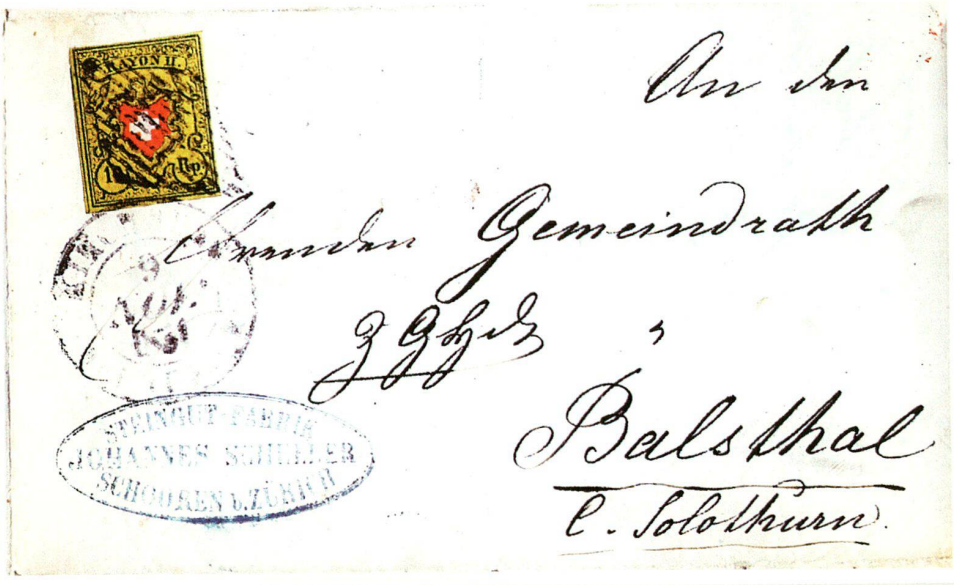 RAYON II.
Rp.
An den
Ehrenden Gemeindrath
Balsthal
C. Solothurn.
9
STEINGUT-FABRIK
JOHANNES SCHELLER
SCHOOREN b. ZÜRICH